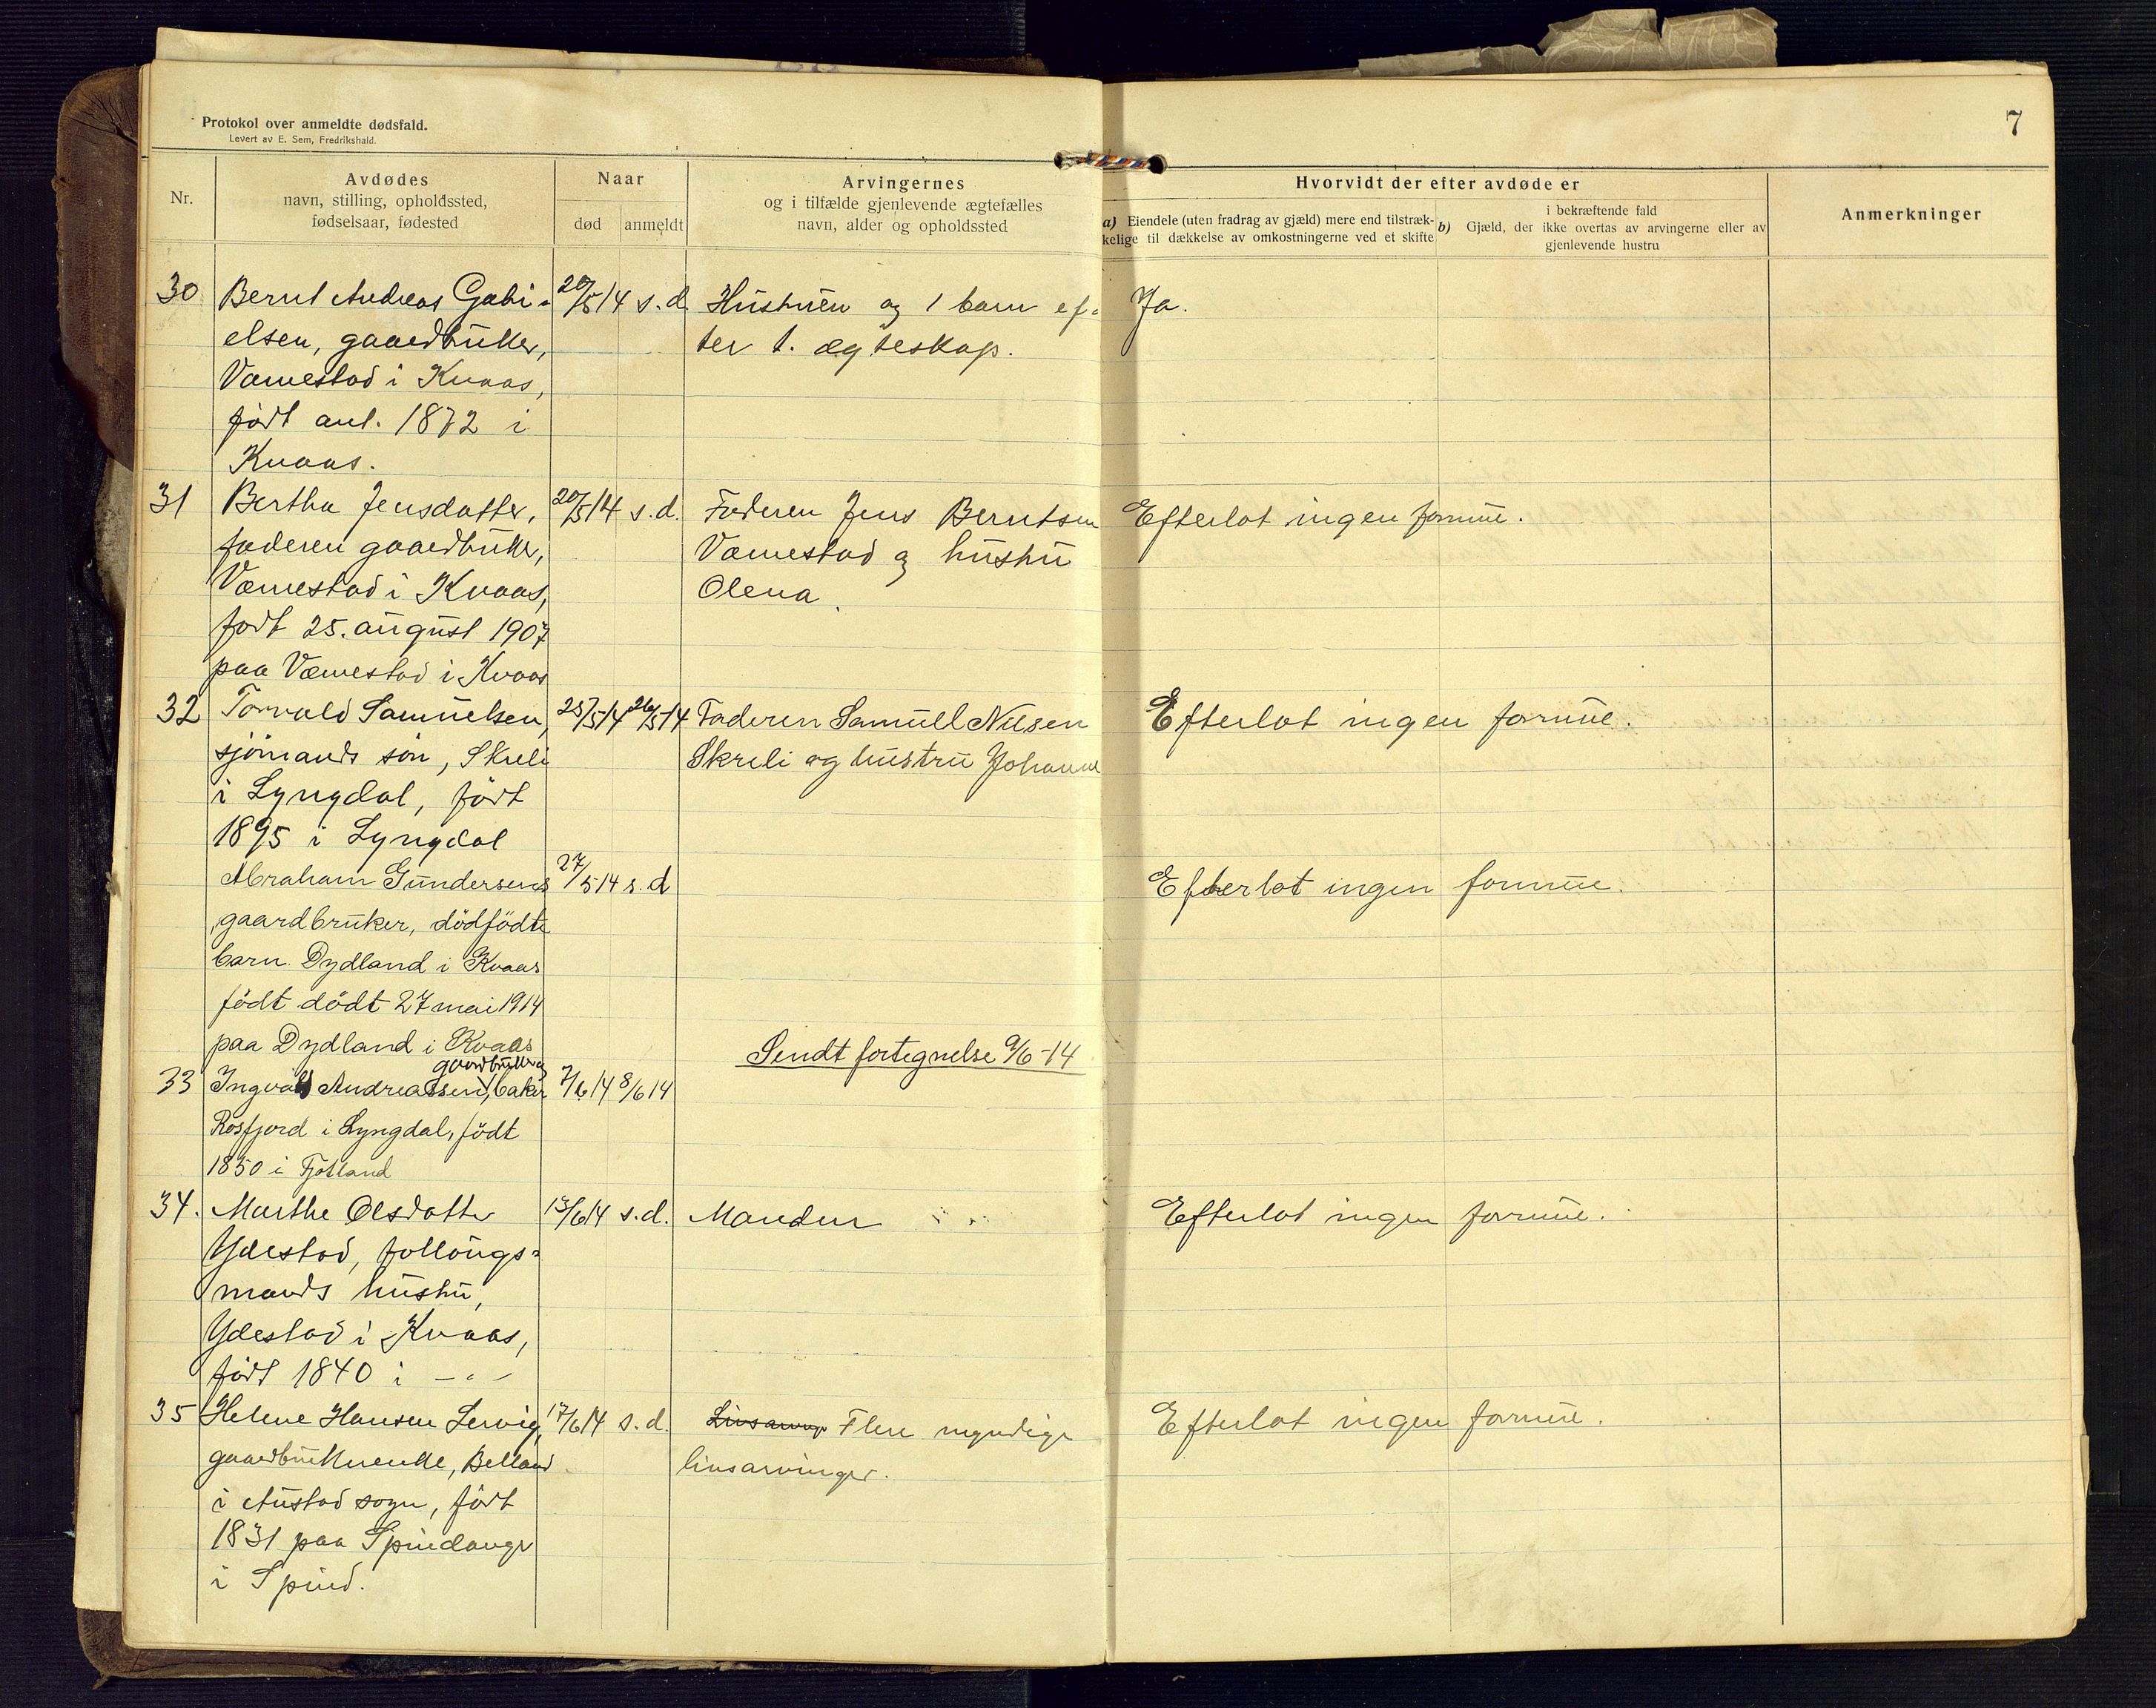 7
Protokol over anmeldte dødsfald.
Levert av E. Sem, Fredrikshald.
Nr.
Avdødes
navn, stilling, opholdssted,
fødselsaar, fødested
Naar
død anmeldt
Arvingernes
og i tilfælde gjenlevende ægtefælles
navn, alder og opholdssted
Hvorvidt der efter avdøde er
a) Eiendele (uten fradrag av gjæld) mere end tilstræk-
kelige til dækkelse av omkostningerne ved et skifte
i bekræftende fald
b) Gjæld, der ikke overtas av arvingerne eller av
gjenlevende hustru
Anmerkninger
30 Bernt Andreas Gabri-
elsen, gaardbruker,
Væmestad i Kvaas,
født ant. 1872 i
Kvaas.
20/5 14 s. d.
Hustruen og 1 barn ef-
ter 1. ægteskap.
Ja.
31 Bertha Jensdatter,
faderen gaardbruker,
Væmestad i Kvaas,
født 25. august 1907
paa Væmestad i Kvaas
20/5 14 s. d.
Faderen Jens Berntsen
Væmestad og hustru
Olena.
Efterlot ingen formue.
32 Torvald Samuelsen,
sjömands sön, Skreli
i Lyngdal, født
1895 i Lyngdal
25/5 14 26/5 14
Faderen Samuel Nilsen
Skreli og hustru Johanne
Efterlot ingen formue.
Abraham Gundersens
gaardbruker, dödfödte
barn Dydland i Kvaas
födt dödt 27 mai 1914
paa Dydland i Kvaas
27/5 14 s. d
Efterlot ingen formue.
gaardbruker og
33 Ingvald Andreassen, baker
Rosfjord i Lyngdal, födt
1850 i Fjotland
7/6 14 8/6 14
Sendt fortegnelse 9/6-14
34. Marthe Olsdatter
Ydestad, follaugs-
mands hustru,
Ydestad i Kvaas,
født 1840 i -"-
13/6 14 s. d.
Manden
Efterlot ingen formue.
35 Helene Hansen Lervig,
gaardbrukerenke, Belland
i Austad sogn, født
1831 paa Spindanger
i Spind.
17/6 14 s. d.
Livsarving Flere myndige
livsarvinger.
Efterlot ingen formue.